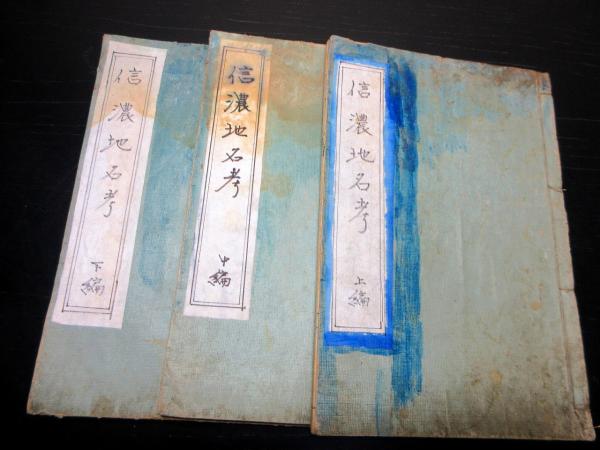 信濃地名考
上編
信濃地名考
中編
信濃地名考
下編